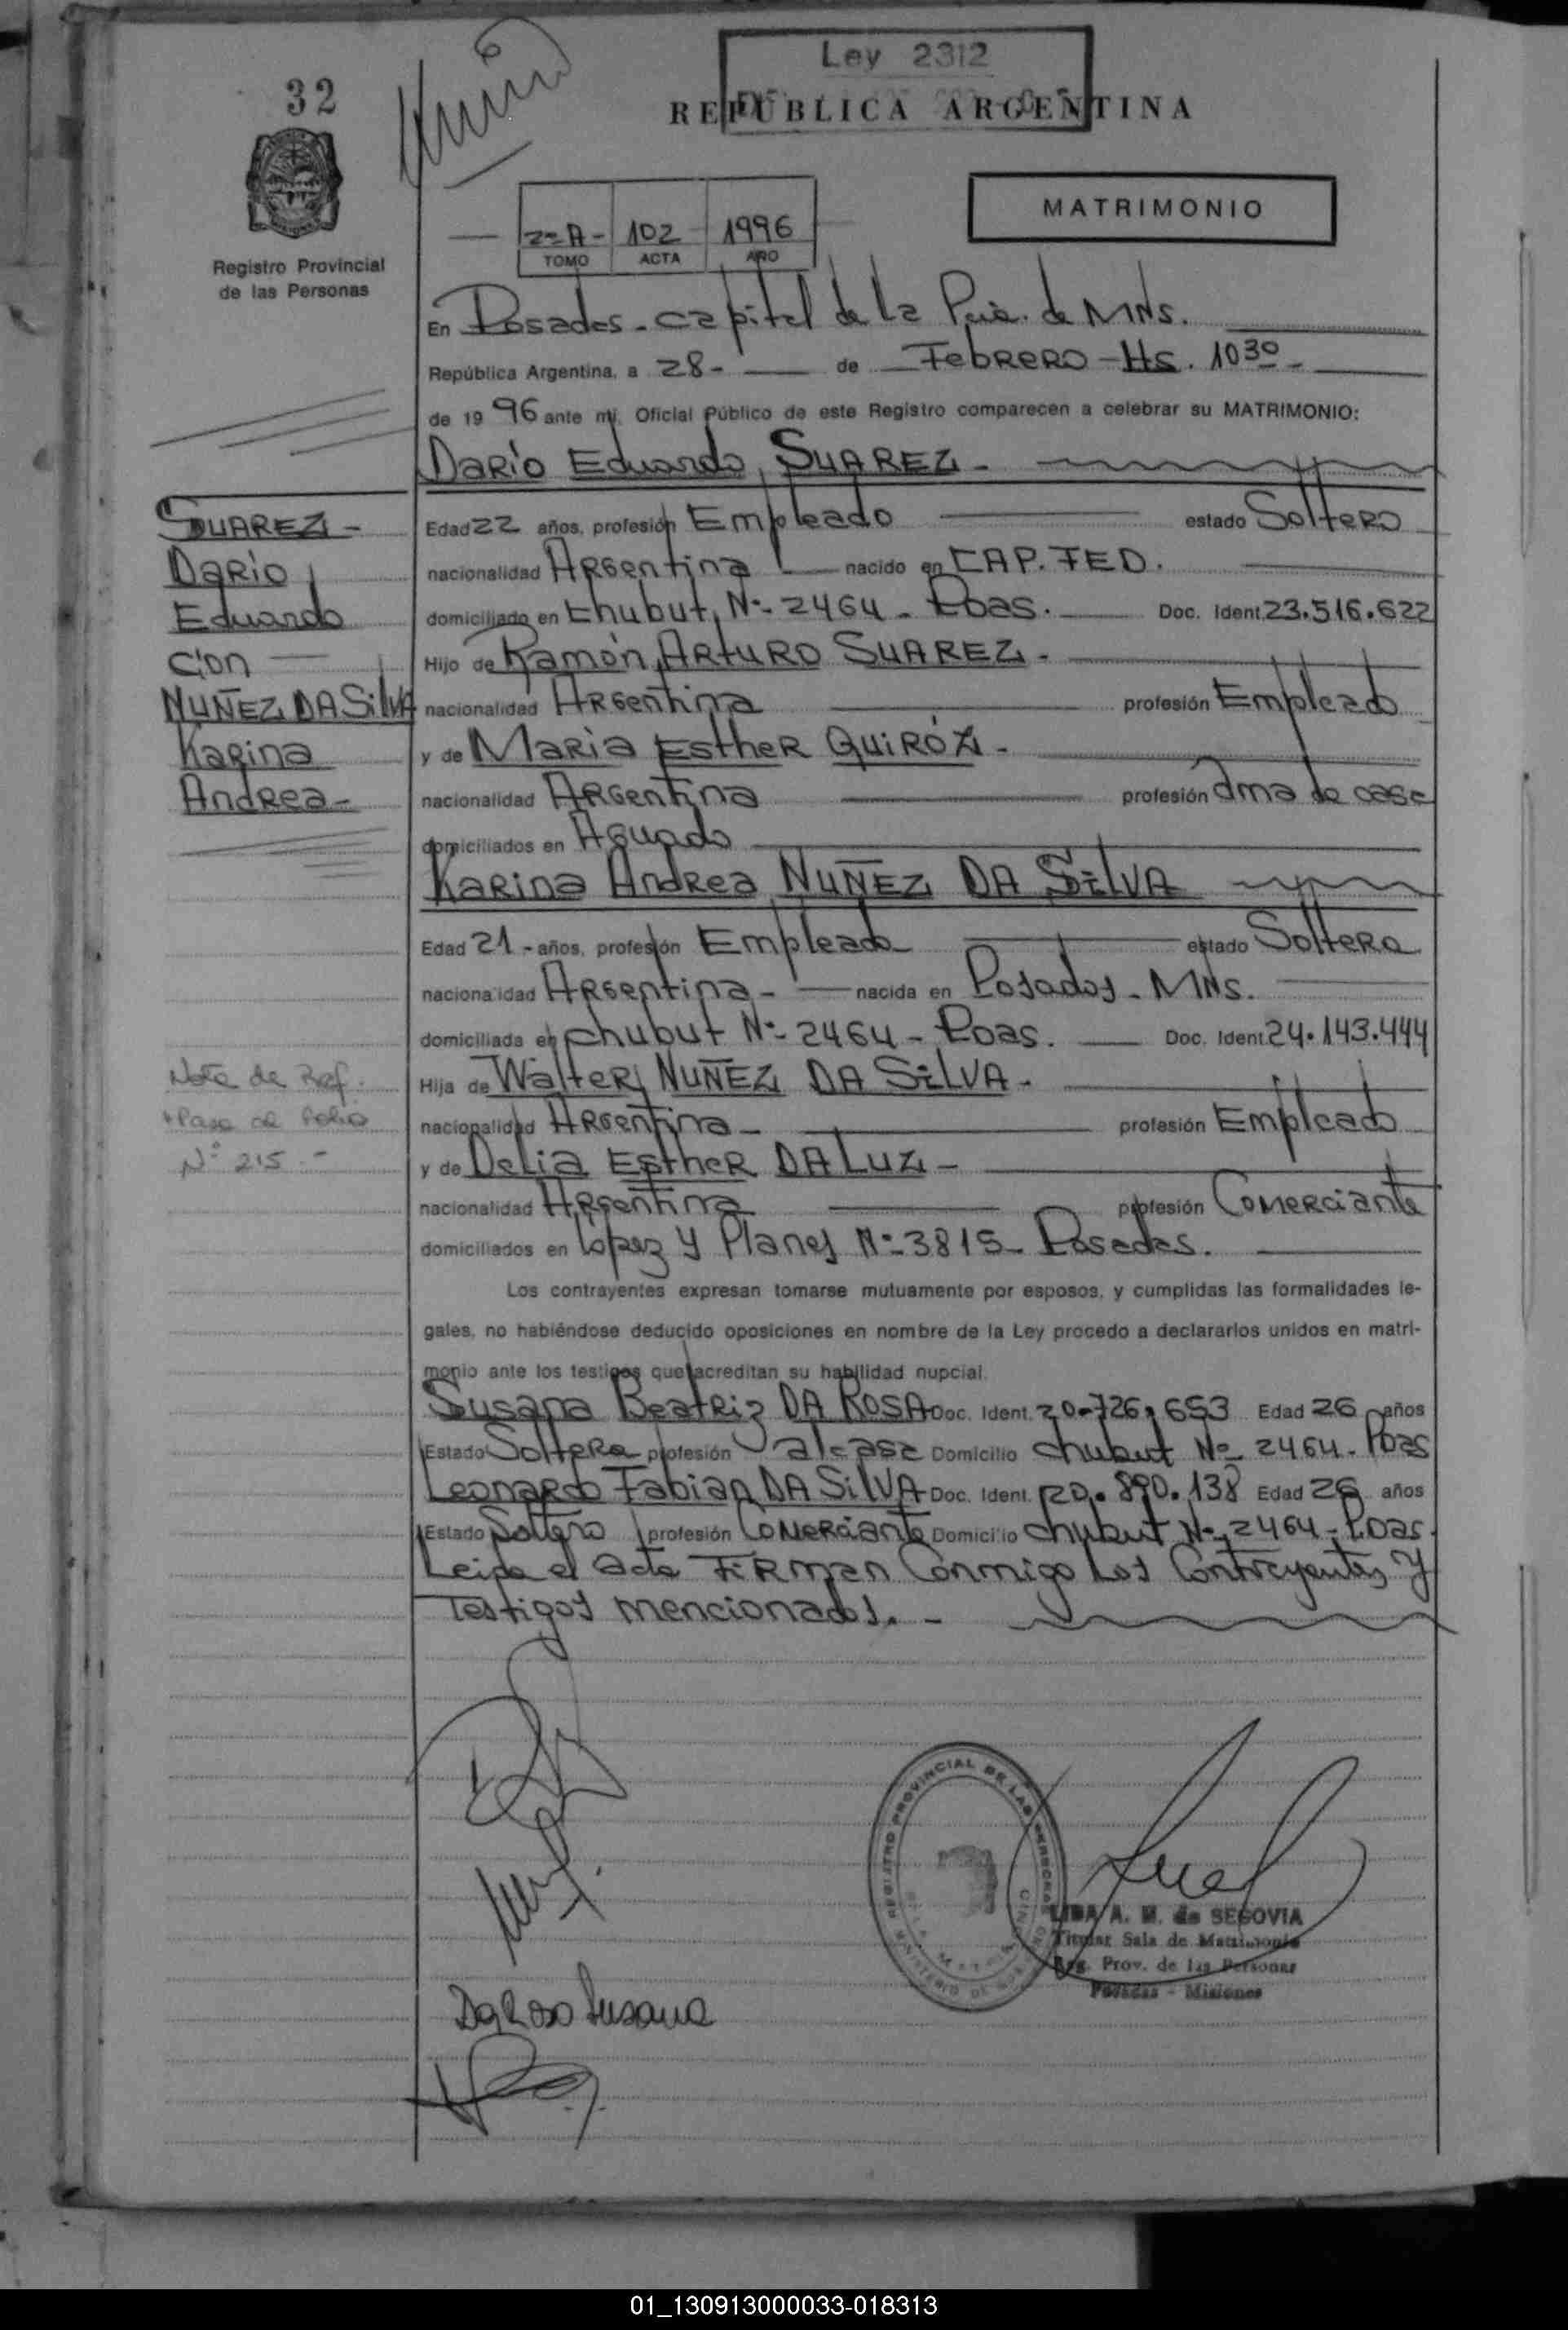 32
Ley 2312
REPUBLICA ARGENTINA
Registro Provincial
de las Personas
2=A- 102 1996
TOMO ACTA AÑO
MATRIMONIO
En Posadas - capital de la Pcia. de MNs.
República Argentina, a 28- de Febrero - Hs. 10 30 -
de 19 96 ante mí, Oficial Público de este Registro comparecen a celebrar su MATRIMONIO:
Darío Eduardo, SUAREZ -
Edad 22 años, profesión Empleado estado Soltero
nacionalidad Argentina nacido en CAP. FED.
domiciliado en Chubut, Nº- 2464 - Pdas. Doc. Ident. 23.516.622
Hijo de Ramón, Arturo SUAREZ -
nacionalidad Argentina profesión Empleado
y de Maria Esther QUIRÓZ -
nacionalidad Argentina profesión Ama de casa
domiciliados en Aguado
Karina Andrea NUÑEZ DA SILVA
Edad 21 - años, profesión Empleada estado Soltera
nacionalidad Argentina - nacida en Posadas - MNs.
domiciliada en chubut Nº- 2464 - Pdas. Doc. Ident. 24.143.444
Hija de Walter, NUÑEZ DA SILVA -
nacionalidad Argentina - profesión Empleado
y de Delia Esther DA LUZ -
nacionalidad Argentina profesión Comerciante
domiciliados en Lopez y Planes Nº- 3815 - Posadas.
Los contrayentes expresan tomarse mutuamente por esposos, y cumplidas las formalidades le-
gales, no habiéndose deducido oposiciones en nombre de la Ley procedo a declararlos unidos en matri-
monio ante los testigos que acreditan su habilidad nupcial.
Susana Beatriz DA ROSA Doc. Ident. 20.726.653 Edad 26 años
Estado Soltera profesión Domicilio chubut Nº 2464 - Pdas
Leonardo Fabian DA SILVA Doc. Ident. 20.890.138 Edad 26 años
Estado Soltero profesión Comerciante Domicilio chubut Nº- 2464 - Pdas.
Leida el acta Firman Conmigo Los Contrayentes y
Testigos mencionados. -
SUAREZ -
Darío,
Eduardo
Con
NUÑEZ DA SILVA
Karina
Andrea -
Nota de Ref.
Pasa al folio
Nº 215 . -
REGISTRO PROVINCIAL DE LAS PERSONAS
MINISTERIO DE
LIDA A. M. de SEGOVIA
Titular Sala de Matrimonio
Reg. Prov. de las Personas
Posadas - Misiones
Da Rosa Susana
01_130913000033-018313